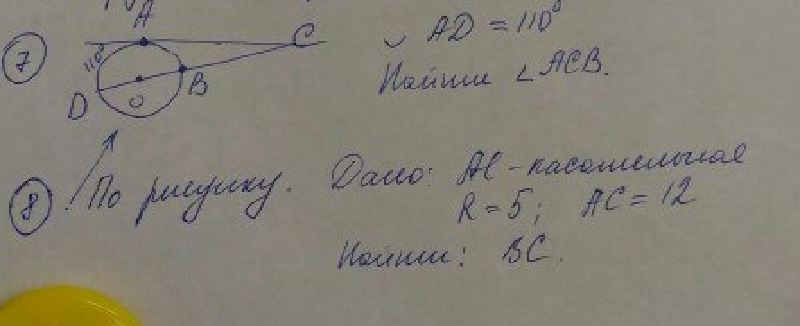 7
A
C
110°
B
D
O
◡ AD = 110°
Найти ∠ACB.
8
По рисунку. Дано: AC - касательная
R = 5; AC = 12
Найти: BC.